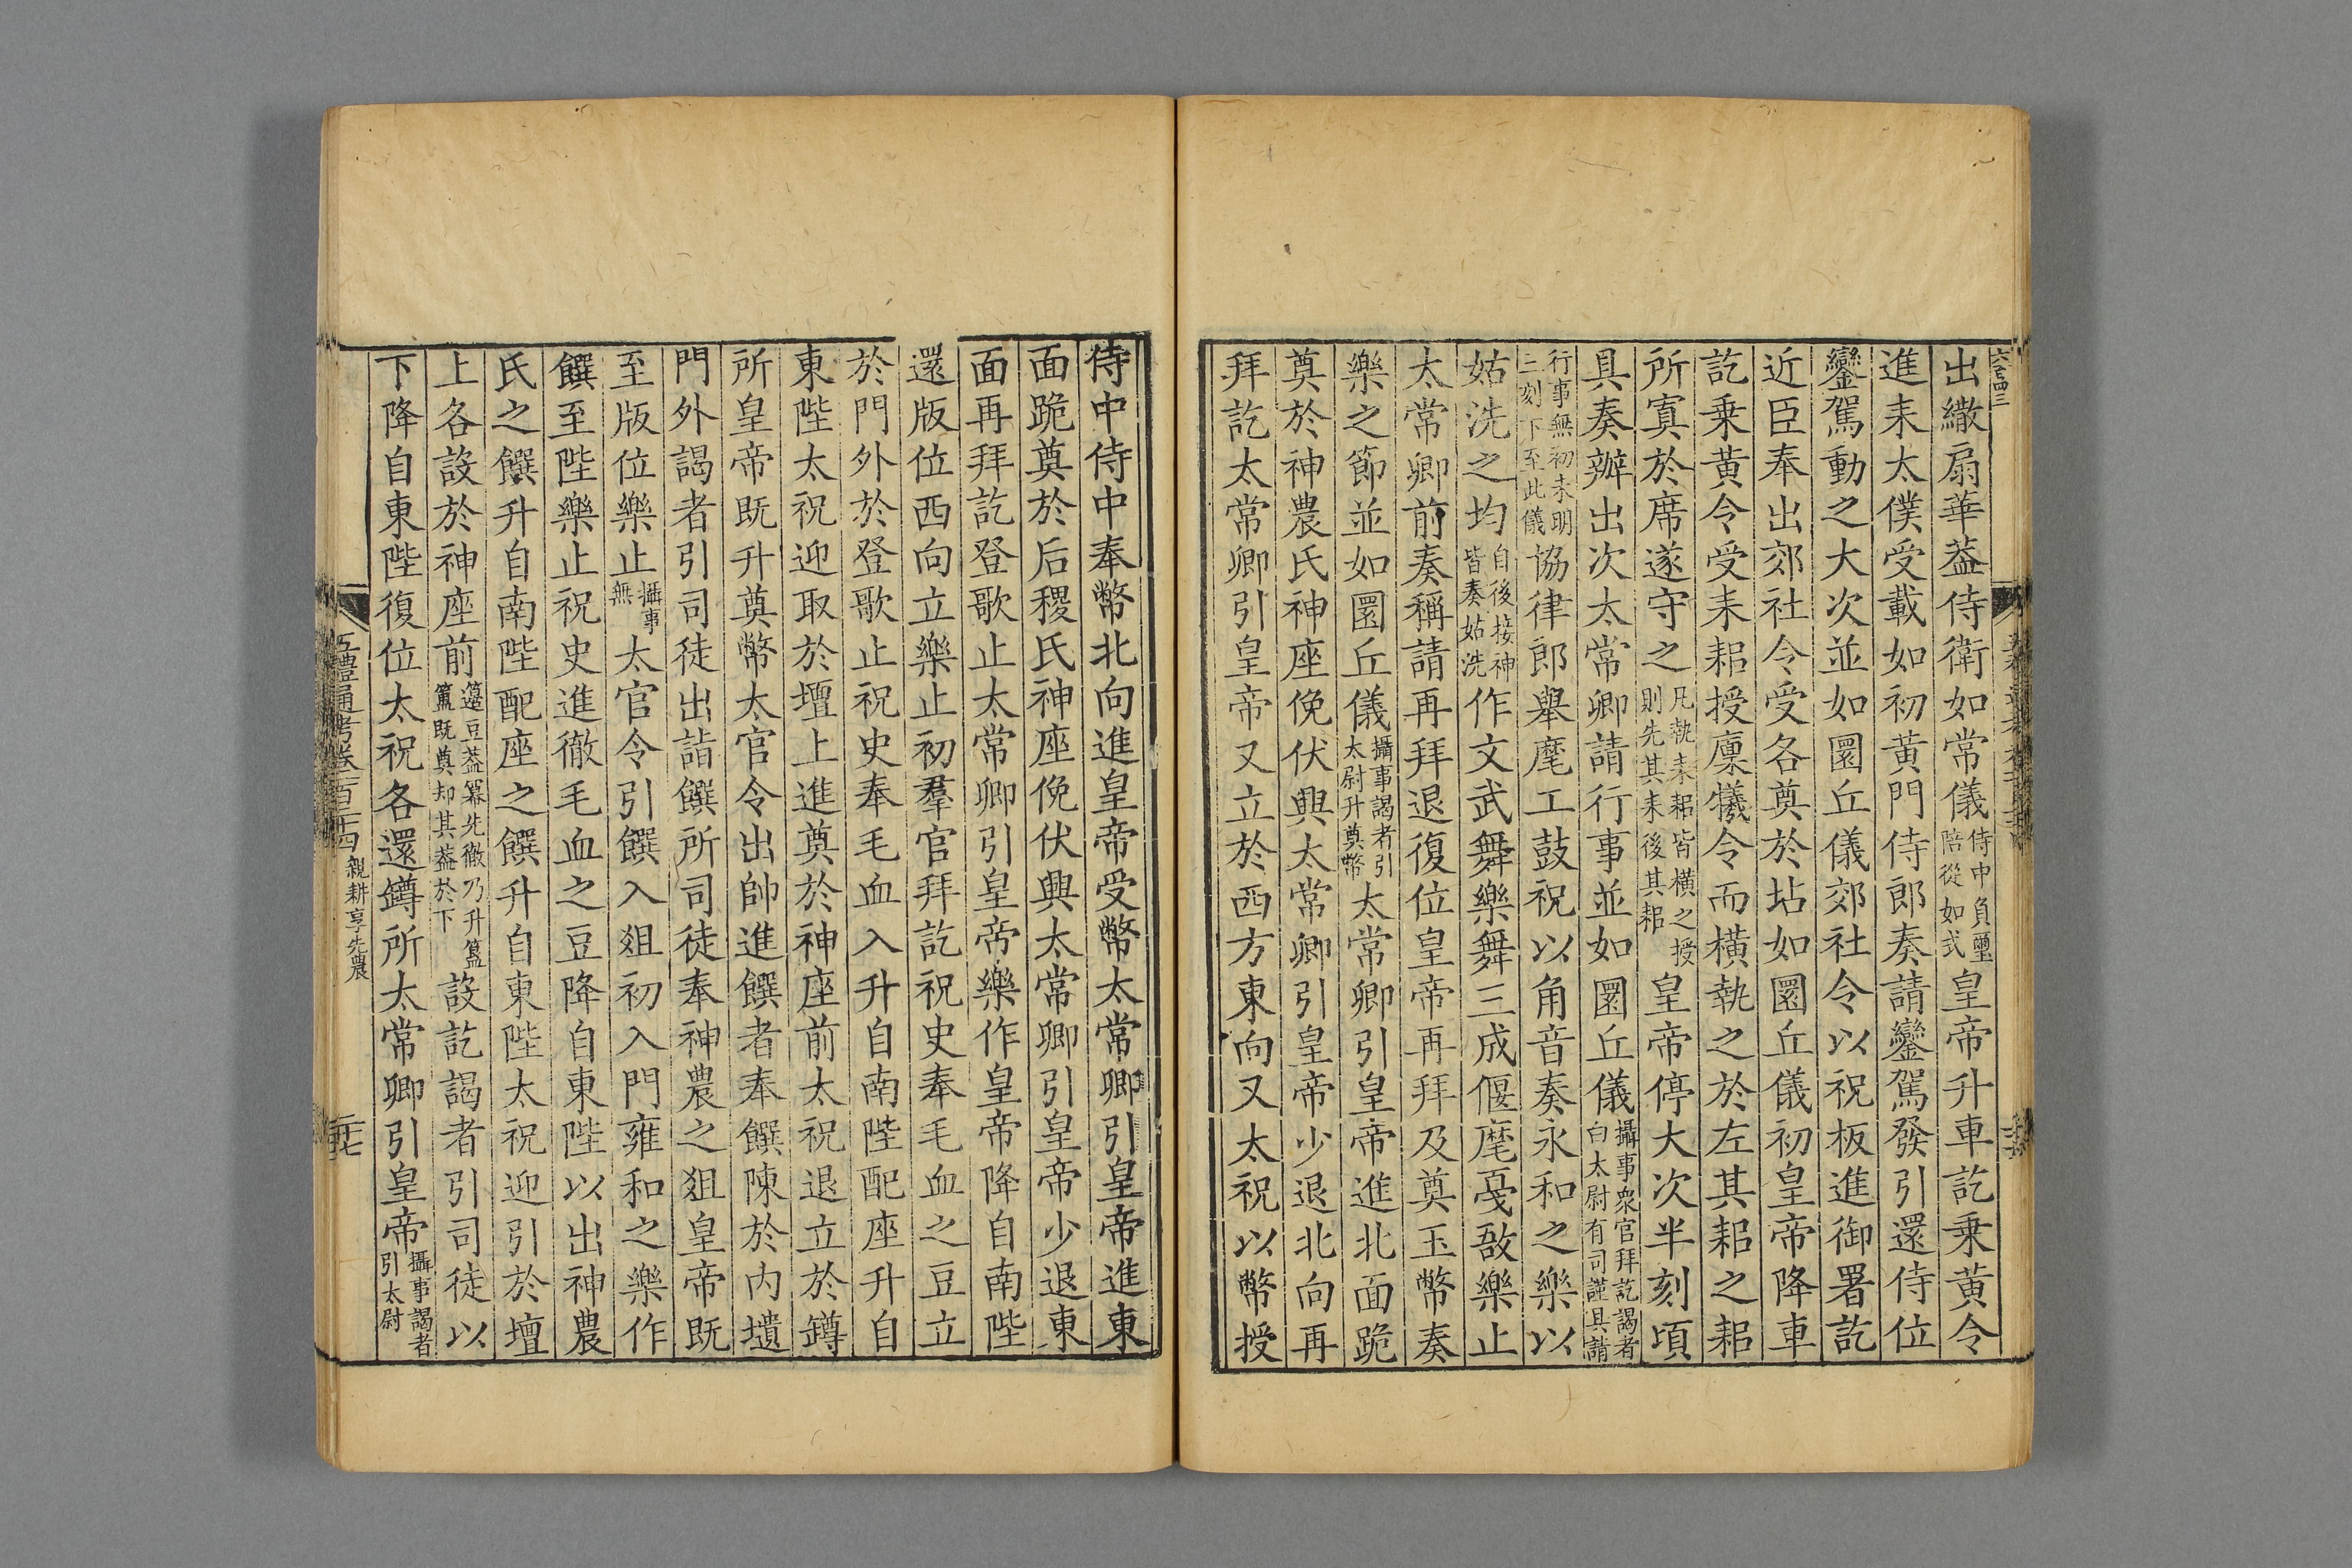 出繖扇華葢侍衛如常儀侍中負璽陪從如式皇帝升車訖乗黃令
進耒太僕受載如初黃門侍郎奏請鑾駕發引還侍位
鑾駕動之大次並如圜丘儀郊社令以祝板進御署訖
近臣奉出郊社令受各奠於坫如圜丘儀初皇帝降車
訖乗黃令受耒耜授廩犧令而橫執之於左其耜之耜
所寘於席遂守之凡執耒耜皆橫之授則先其耒後其耜皇帝停大次半刻頃
具奏辦出次太常卿請行事並如圜丘儀攝事衆官拜訖謁者白太尉有司謹具請
行事無初未明二刻下至此儀協律郎舉麾工鼓祝以角音奏永和之樂以
姑洗之均自後接神皆奏姑洗作文武舞樂舞三成偃麾戞敔樂止
太常卿前奏稱請再拜退復位皇帝再拜及奠玉幣奏
樂之節並如圜丘儀攝事謁者引太尉升奠幣太常卿引皇帝進北面跪
奠於神農氏神座俛伏興太常卿引皇帝少退北向再
拜訖太常卿引皇帝又立於西方東向又太祝以幣授
侍中侍中奉幣北向進皇帝受幣太常卿引皇帝進東
面跪奠於后稷氏神座俛伏興太常卿引皇帝少退東
面再拜訖登歌止太常卿引皇帝樂作皇帝降自南陛
還版位西向立樂止初羣官拜訖祝史奉毛血之豆立
於門外於登歌止祝史奉毛血入升自南陛配座升自
東陛太祝迎取於壇上進奠於神座前太祝退立於罇
所皇帝既升奠幣太官令出帥進饌者奉饌陳於内壝
門外謁者引司徒出詣饌所司徒奉神農之俎皇帝既
至版位樂止攝事無太官令引饌入俎初入門雍和之樂作
饌至陛樂止祝史進徹毛血之豆降自東陛以出神農
氏之饌升自南陛配座之饌升自東陛太祝迎引於壇
上各設於神座前籩豆葢羃先徹乃升簠簋既奠却其葢於下設訖謁者引司徒以
下降自東陛復位太祝各還罇所太常卿引皇帝攝事謁者引太尉
五禮通考卷一百二十四 親耕享先農